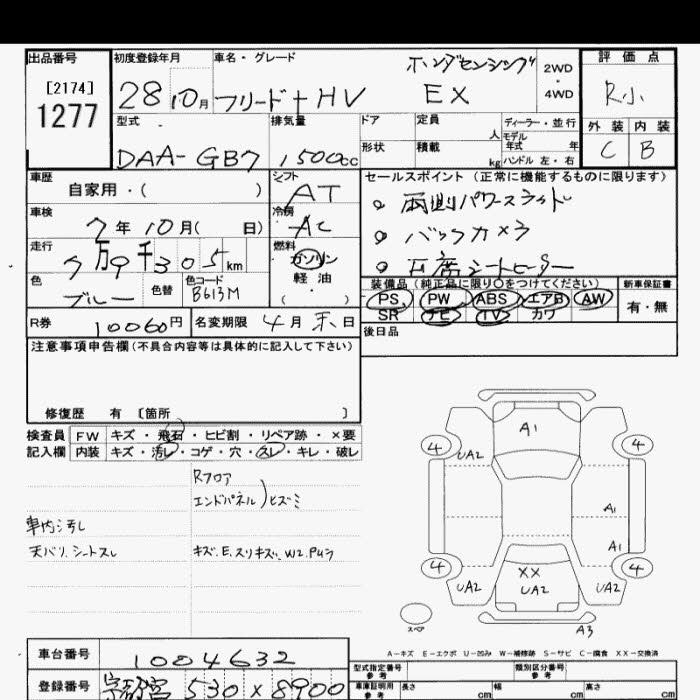 出品番号
[2174]
1277
初度登録年月
28 10月
車名・グレード
ホンダセンシング
フリード+HV EX
2WD
・
4WD
評価点
R小
型式
DAA-GB7
排気量
1500cc
ドア
定員 人
形状
積載 kg
ディーラー・並行
モデル年式 年
ハンドル 左・右
外装 内装
C B
車歴
自家用・( )
シフト
AT
セールスポイント (正常に機能するものに限ります)
両側パワースライド
バックカメラ
車検
7年10月( 日)
冷房
AC
走行
7万9千305km
燃料
ガソリン
・
軽油
・
( )
色
ブルー
色替
色コード
B613M
装備品 (純正品に限り○をつけてください)
PS PW ABS エアB AW
SR ナビ TV カワ
新車保証書
有・無
R券 10060円
名変期限 4月末日
後日品
注意事項申告欄(不具合内容等は具体的に記入して下さい)
修復歴 有 [箇所 ]
検査員
記入欄
FW キズ・飛石・ヒビ割・リペア跡・×要
内装 キズ・汚レ・コゲ・穴・スレ・キレ・破レ
Rフロア
エンドパネル)ヒズミ
車内汚レ
天バリ、シートスレ
キズ、E、スリキズ、W2、
A1
4 UA2 4
A1
A1
4 4
UA2 XX UA2 UA2
スペア
A3
A-キズ E-エクボ U-凹み W-補修跡 S-サビ C-腐食 XX-交換済
車台番号 1004632
登録番号 530 × 8900
型式指定番号
参考
類別区分番号
参考
車庫証明用
参考
長さ cm 幅 cm 高さ cm